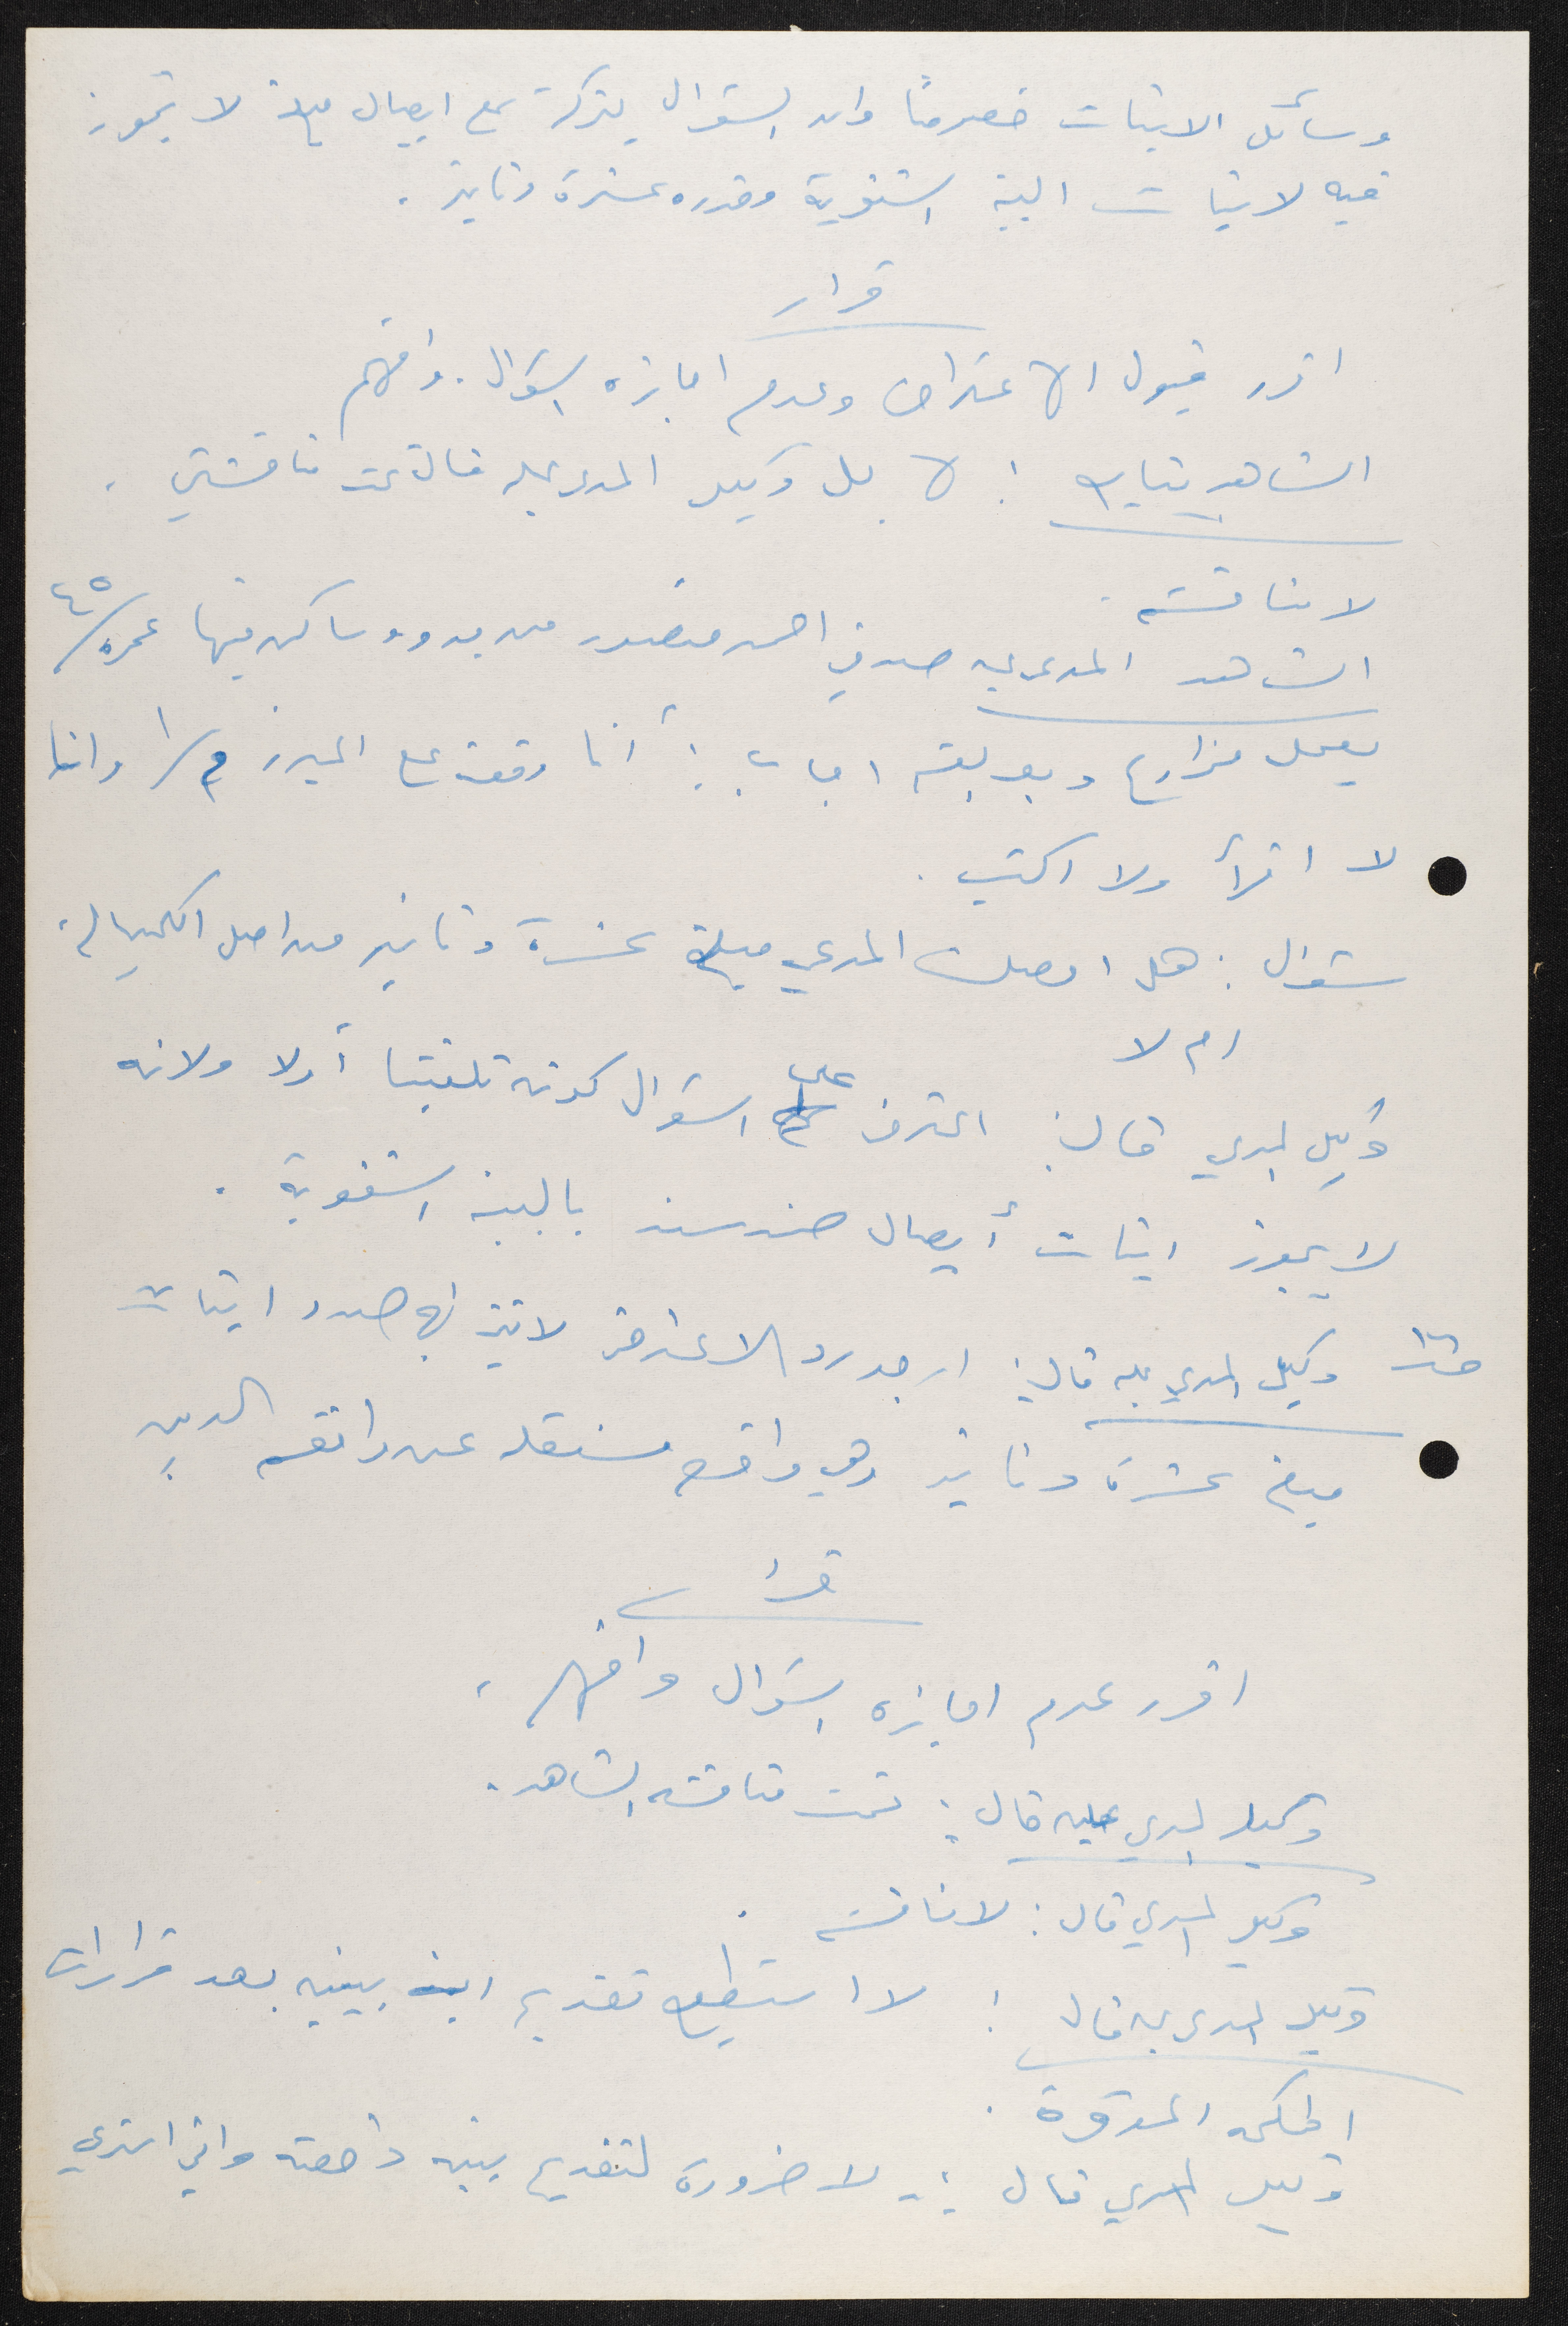 وسائل الاثبات خصوصًا وان السؤال يتركز مع ايصال مبلغ لا تجوز
فيه لاثبات البينة الشفوية وقدره عشرة دنانير .
قرار
اقرر قبول الاعتراض وعدم اجازة السؤال . وافهم
الشاهد يتابع : لا بل وكيل المدعى عليه قال تمت مناقشتي .
لا مناقشة .
الشاهد المدعى عليه صدقي احمد منصور من بدو وساكن فيها عمره /٤٥
يعمل مزارع وبعد القسم اجاب : أنا وقعت على المبرز م/١ وانا
لا اقرأ ولا اكتب .
سؤال : هل اوصلت المدعي مبلغ عشرة دنانير من اصل الكمبيالة
ام لا
وكيل المدعي قال : اعترض على السؤال كونه تلقينا أولا ولانه
لا يجوز اثبات أيصال ضد سند بالبينة الشفوية .
وكيل المدعى عليه قال : ارجو رد الاعتراض لانني في صدد اثبات
مبلغ عشرة دنانير وهي واقعة مستقلة عن واقعة الدين .
قرار
اقرر عدم اجازة السؤال وافهم .
وكيل المدعى عليه قال : تمت مناقشة الشاهد .
وكيل المدعي قال : لا مناقشة .
وكيل المدعى عليه قال : لا استطيع تقديم اية بينه بعد قرارات
المحكمة الموقرة .
وكيل المدعي قال : لا ضرورة لتقديم بينه داحضه واني استدعي